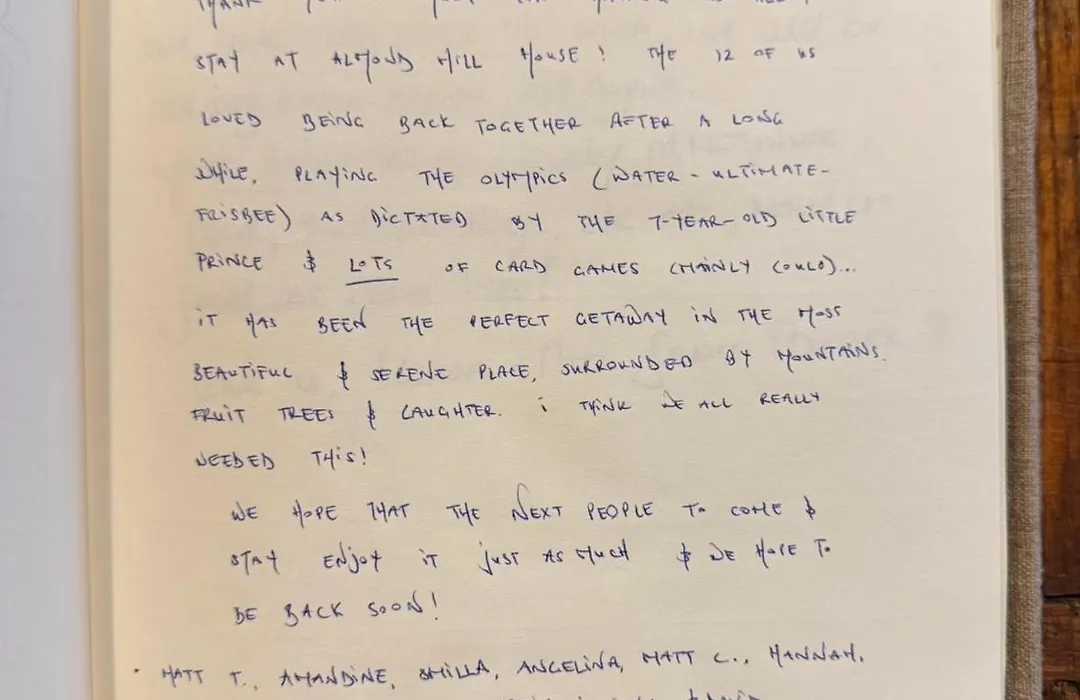 THANK YOU
STAY AT ALMOND HILL HOUSE! THE 12 OF US
LOVED BEING BACK TOGETHER AFTER A LONG
WHILE, PLAYING THE OLYMPICS (WATER-ULTIMATE-
FRISBEE) AS DICTATED BY THE 7-YEAR-OLD LITTLE
PRINCE & LOTS OF CARD GAMES (MAINLY
IT HAS BEEN THE PERFECT GETAWAY IN THE MOST
BEAUTIFUL & SERENE PLACE, SURROUNDED BY MOUNTAINS.
FRUIT TREES & LAUGHTER. i THINK WE ALL REALLY
NEEDED THIS!
WE HOPE THAT THE NEXT PEOPLE TO COME &
STAY ENJOY IT JUST AS MUCH & WE HOPE TO
BE BACK SOON!
• MATT T., AMANDINE, SMILLA, ANGELINA, MATT C., HANNAH,